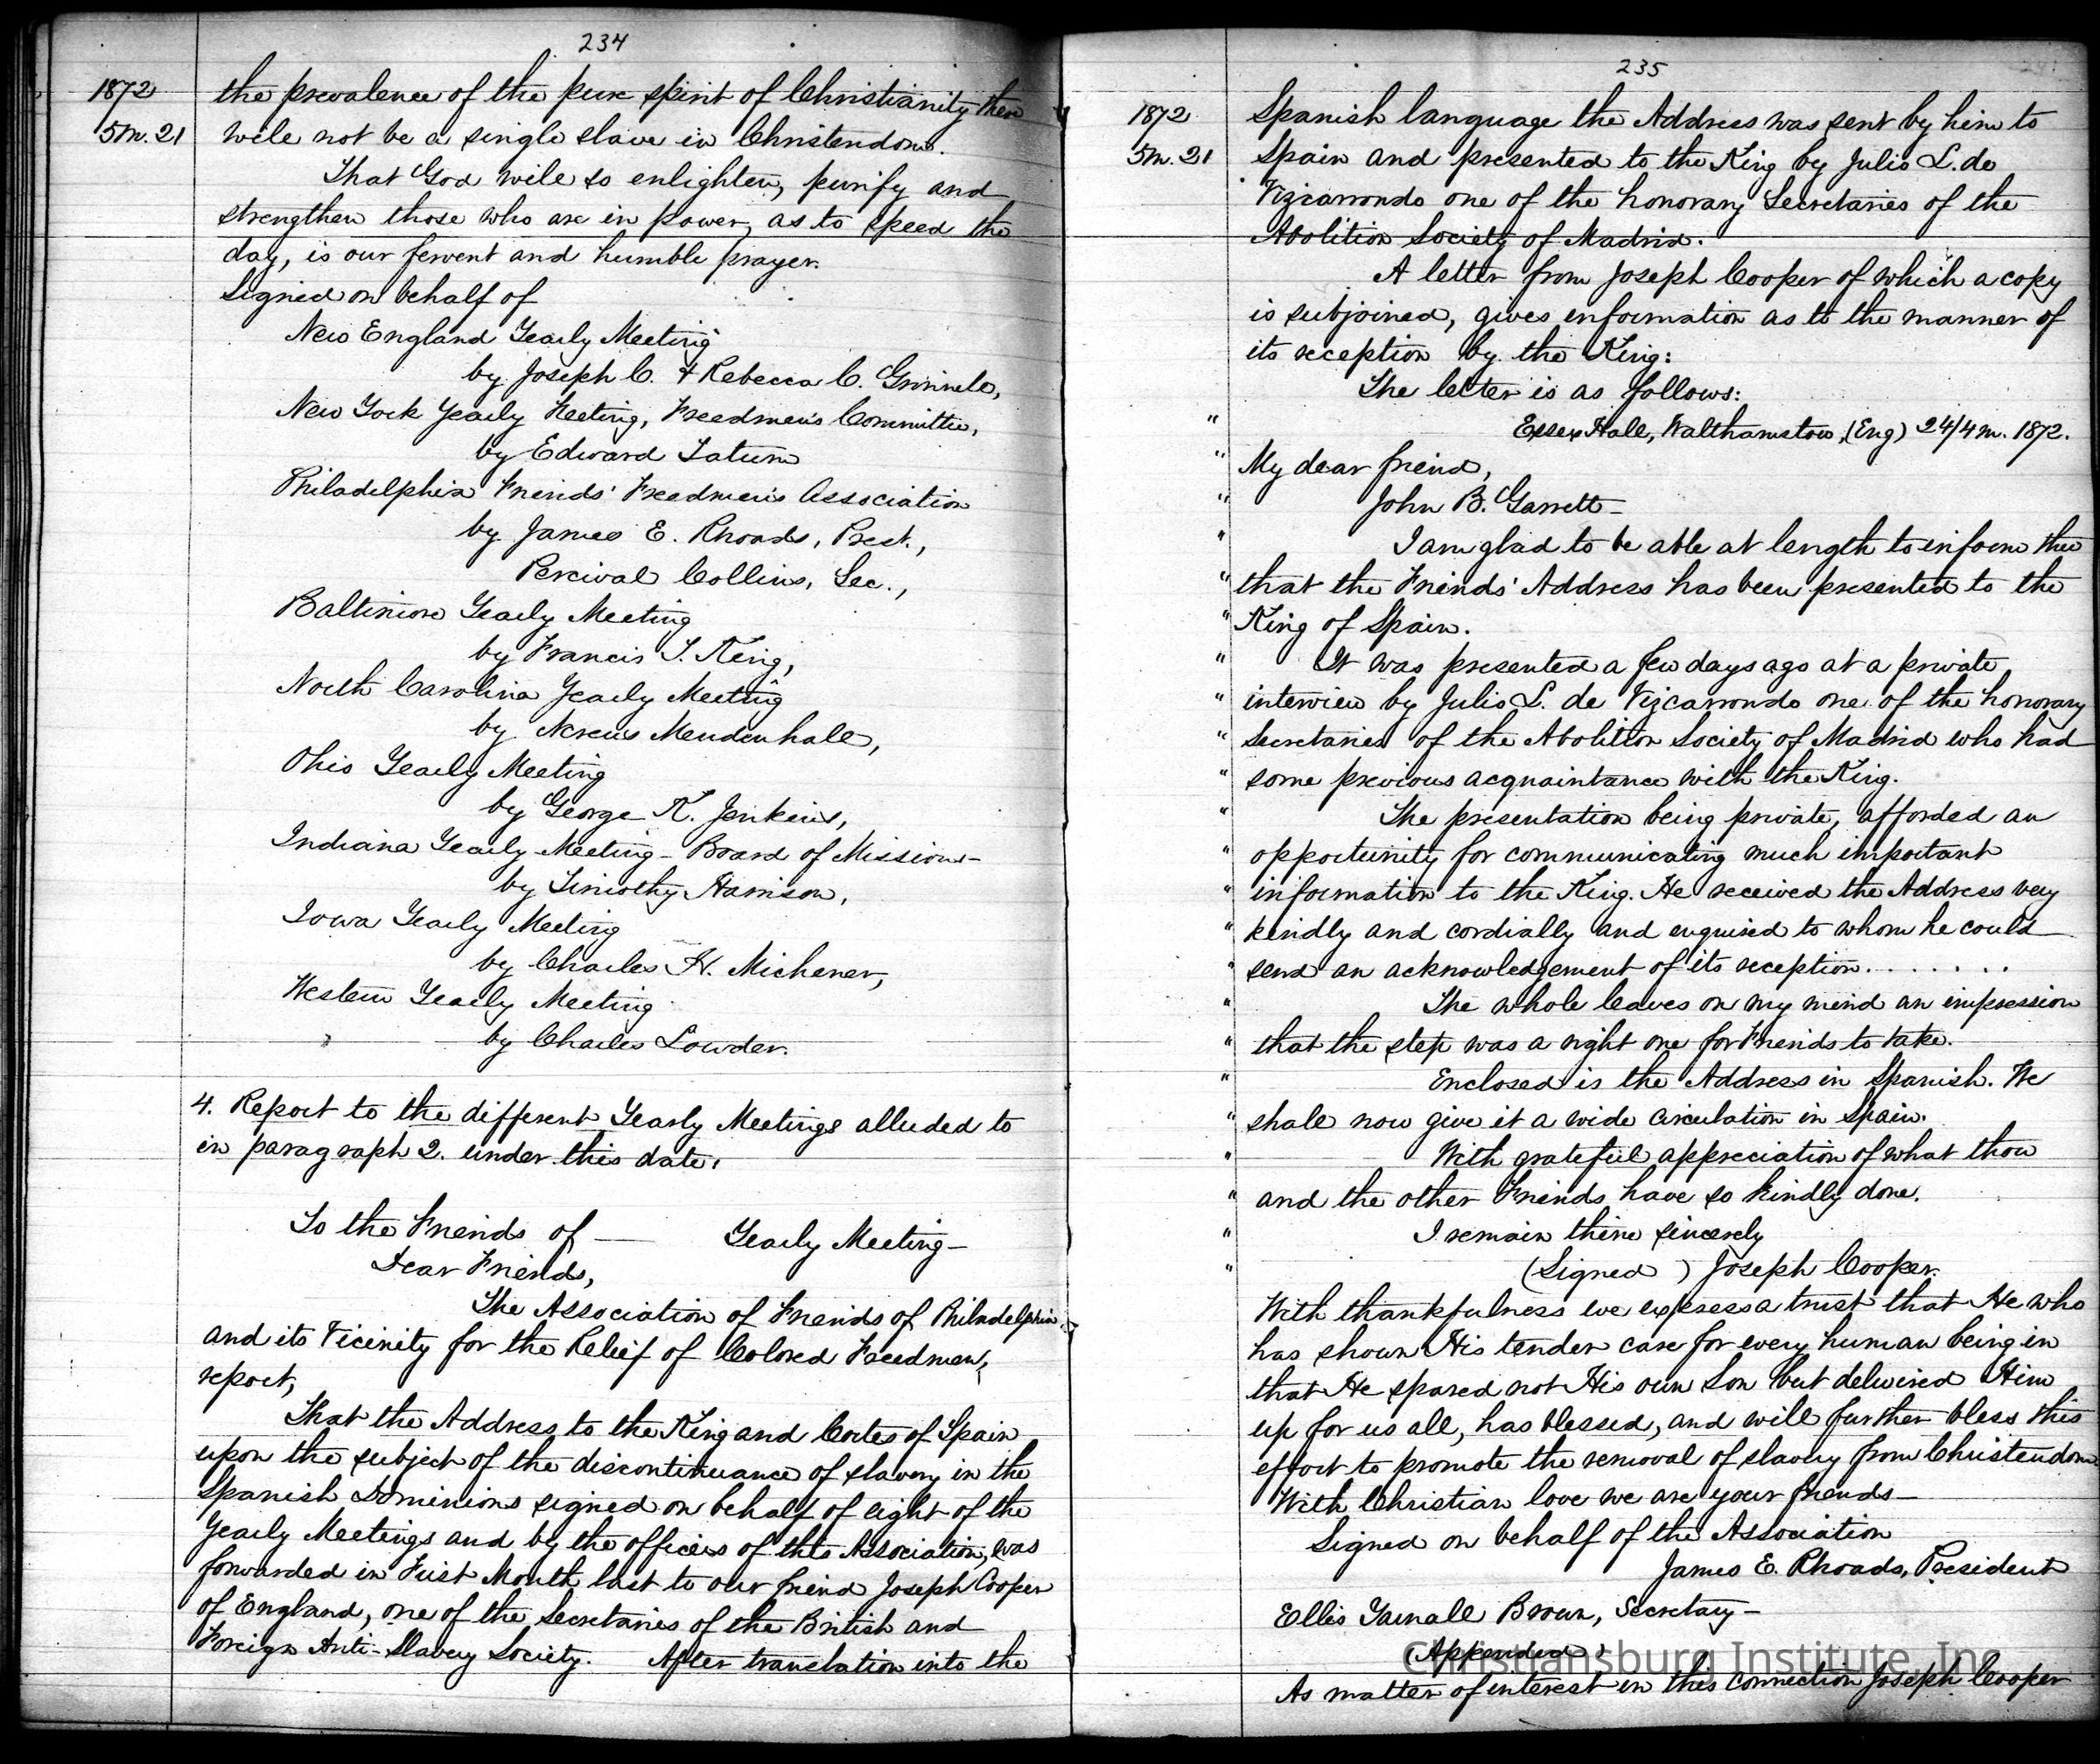 234
1872
5m. 21
the prevalence of the pure spirit of Christianity there
will not be a single slave in Christendom.
That God will so enlighten, purify and
strengthen those who are in power, as to speed the
day, is our fervent and humble prayer.
Signed on behalf of
New England Yearly Meeting
by Joseph C. & Rebecca C. Grinnell,
New York Yearly Meeting, Freedmen's Committee,
by Edward Tatum
Philadelphia Friends' Freedmen's Association
by James E. Rhoads, Prest.,
Percival Collins, Sec.,
Baltimore Yearly Meeting
by Francis T. King,
North Carolina Yearly Meeting
by Nereus Mendenhall,
Ohio Yearly Meeting
by George K. Jenkins,
Indiana Yearly Meeting - Board of Missions -
by Timothy Harrison,
Iowa Yearly Meeting
by Charles H. Michener,
Western Yearly Meeting
by Charles Lowder.
4. Report to the different Yearly Meetings alluded to
in paragraph 2. under this date.
To the Friends of — Yearly Meeting -
Dear Friends,
The Association of Friends of Philadelphia
and its Vicinity for the Relief of Colored Freedmen,
report,
That the Address to the King and Cortes of Spain
upon the subject of the discontinuance of slavery in the
Spanish Dominions signed on behalf of eight of the
Yearly Meetings and by the officers of this Association, was
forwarded in First Month last to our friend Joseph Cooper
of England, one of the Secretaries of the British and
Foreign Anti-Slavery Society. After translation into the
235
1872
5m. 21
Spanish language the Address was sent by him to
Spain and presented to the King by Julio L. de
Vizcarrondo one of the honorary Secretaries of the
Abolition Society of Madrid.
A letter from Joseph Cooper of which a copy
is subjoined, gives information as to the manner of
its reception by the King:
The letter is as follows:
" Essex Hall, Walthamstow, (Eng) 24/4m. 1872.
" My dear friend,
" John B. Garrett -
" I am glad to be able at length to inform thee
" that the Friends' Address has been presented to the
" King of Spain.
" It was presented a few days ago at a private
" interview by Julio L. de Vizcarrondo one of the honorary
" Secretaries of the Abolition Society of Madrid who had
" some previous acquaintance with the King.
" The presentation being private, afforded an
" opportunity for communicating much important
" information to the King. He received the Address very
" kindly and cordially and enquired to whom he could
" send an acknowledgement of its reception. . . . . . .
" The whole leaves on my mind an impression
" that the step was a right one for Friends to take.
" Enclosed is the Address in Spanish. We
" shall now give it a wide circulation in Spain.
" With grateful appreciation of what thou
" and the other Friends have so kindly done.
" I remain thine sincerely
" (Signed ) Joseph Cooper.
With thankfulness we express a trust that He who
has shown His tender care for every human being in
that He spared not His own Son but delivered Him
up for us all, has blessed, and will further bless this
effort to promote the removal of slavery from Christendom.
With Christian love we are your friends -
Signed on behalf of the Association
James E. Rhoads, President
Ellis Yarnall Brown, Secretary -
(Appended)
As matter of interest in this connection Joseph Cooper
Christiansburg Institute, Inc.